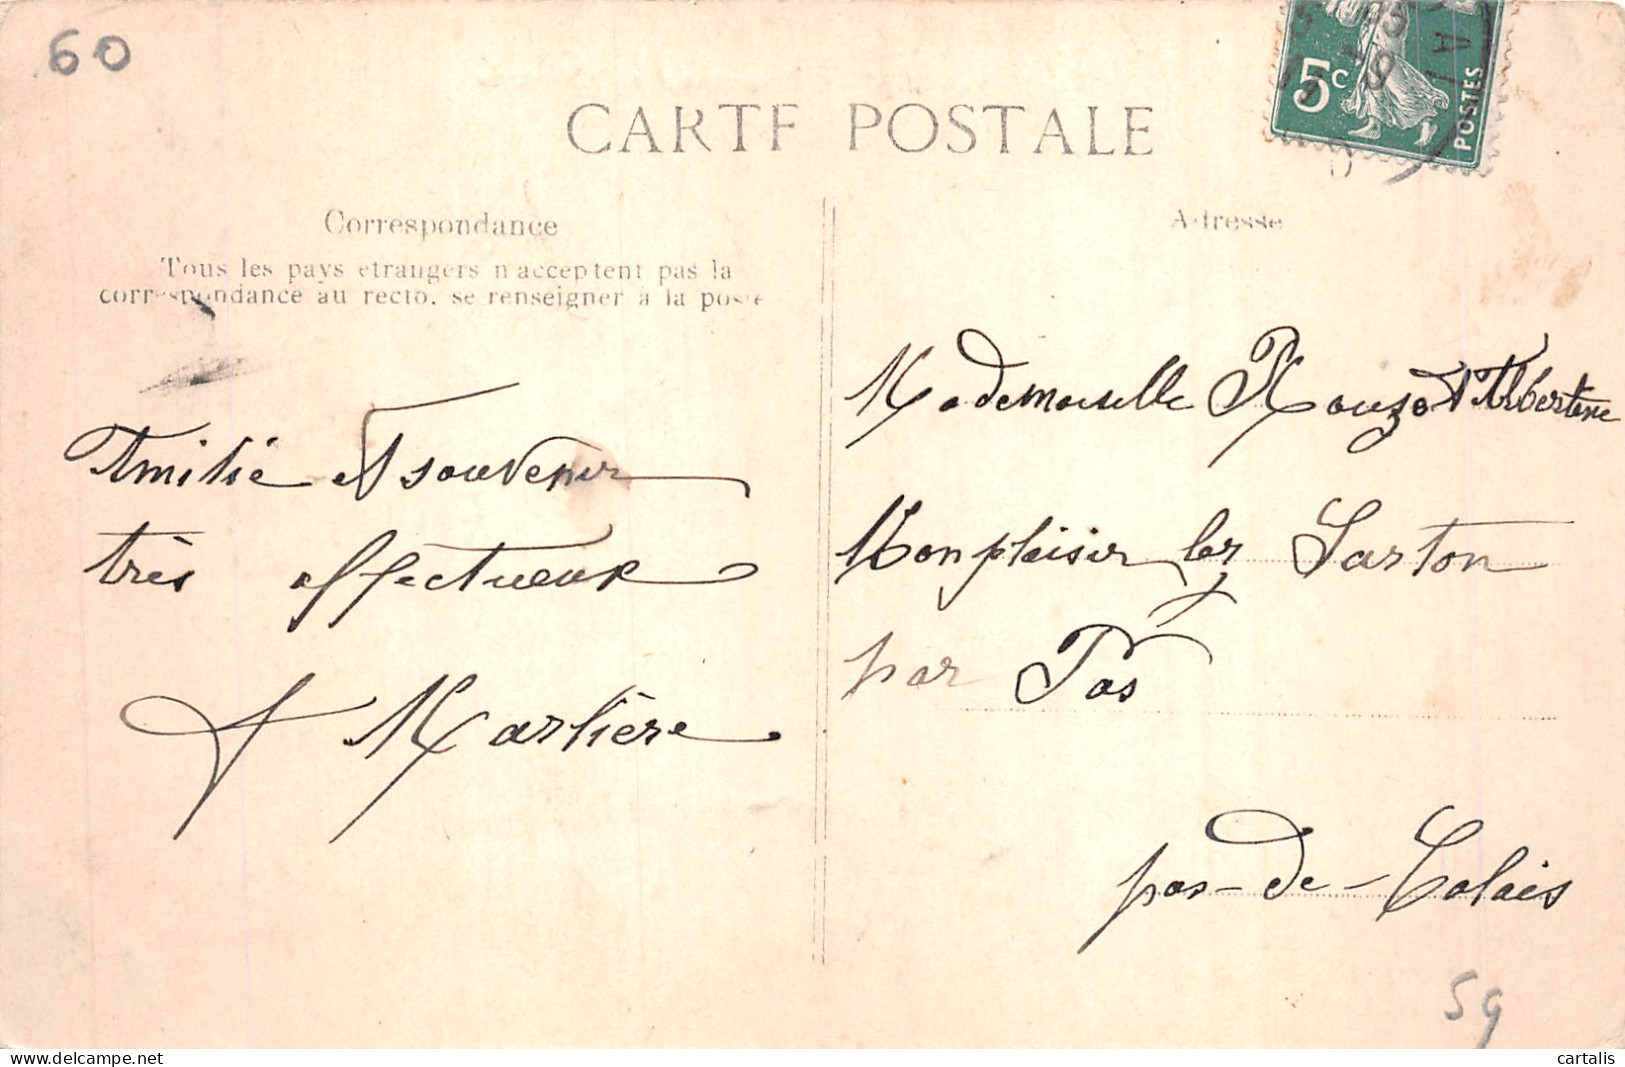 60
CARTE POSTALE
5c
POSTES
Correspondance
Tous les pays étrangers n'acceptent pas la
correspondance au recto. se renseigner à la poste
Adresse
Amitié et souvenir
très affectueux
Marlière
Mademoiselle Albertine
Monplaisir lez Sarton
par Pas
pas-de-Calais
59
cartalis
delcampe.net